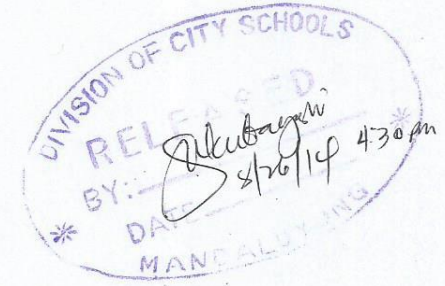 DIVISION OF CITY SCHOOLS
RELEASED
BY:
DATE
8/26/14 4:30 pm
MANDALUYONG